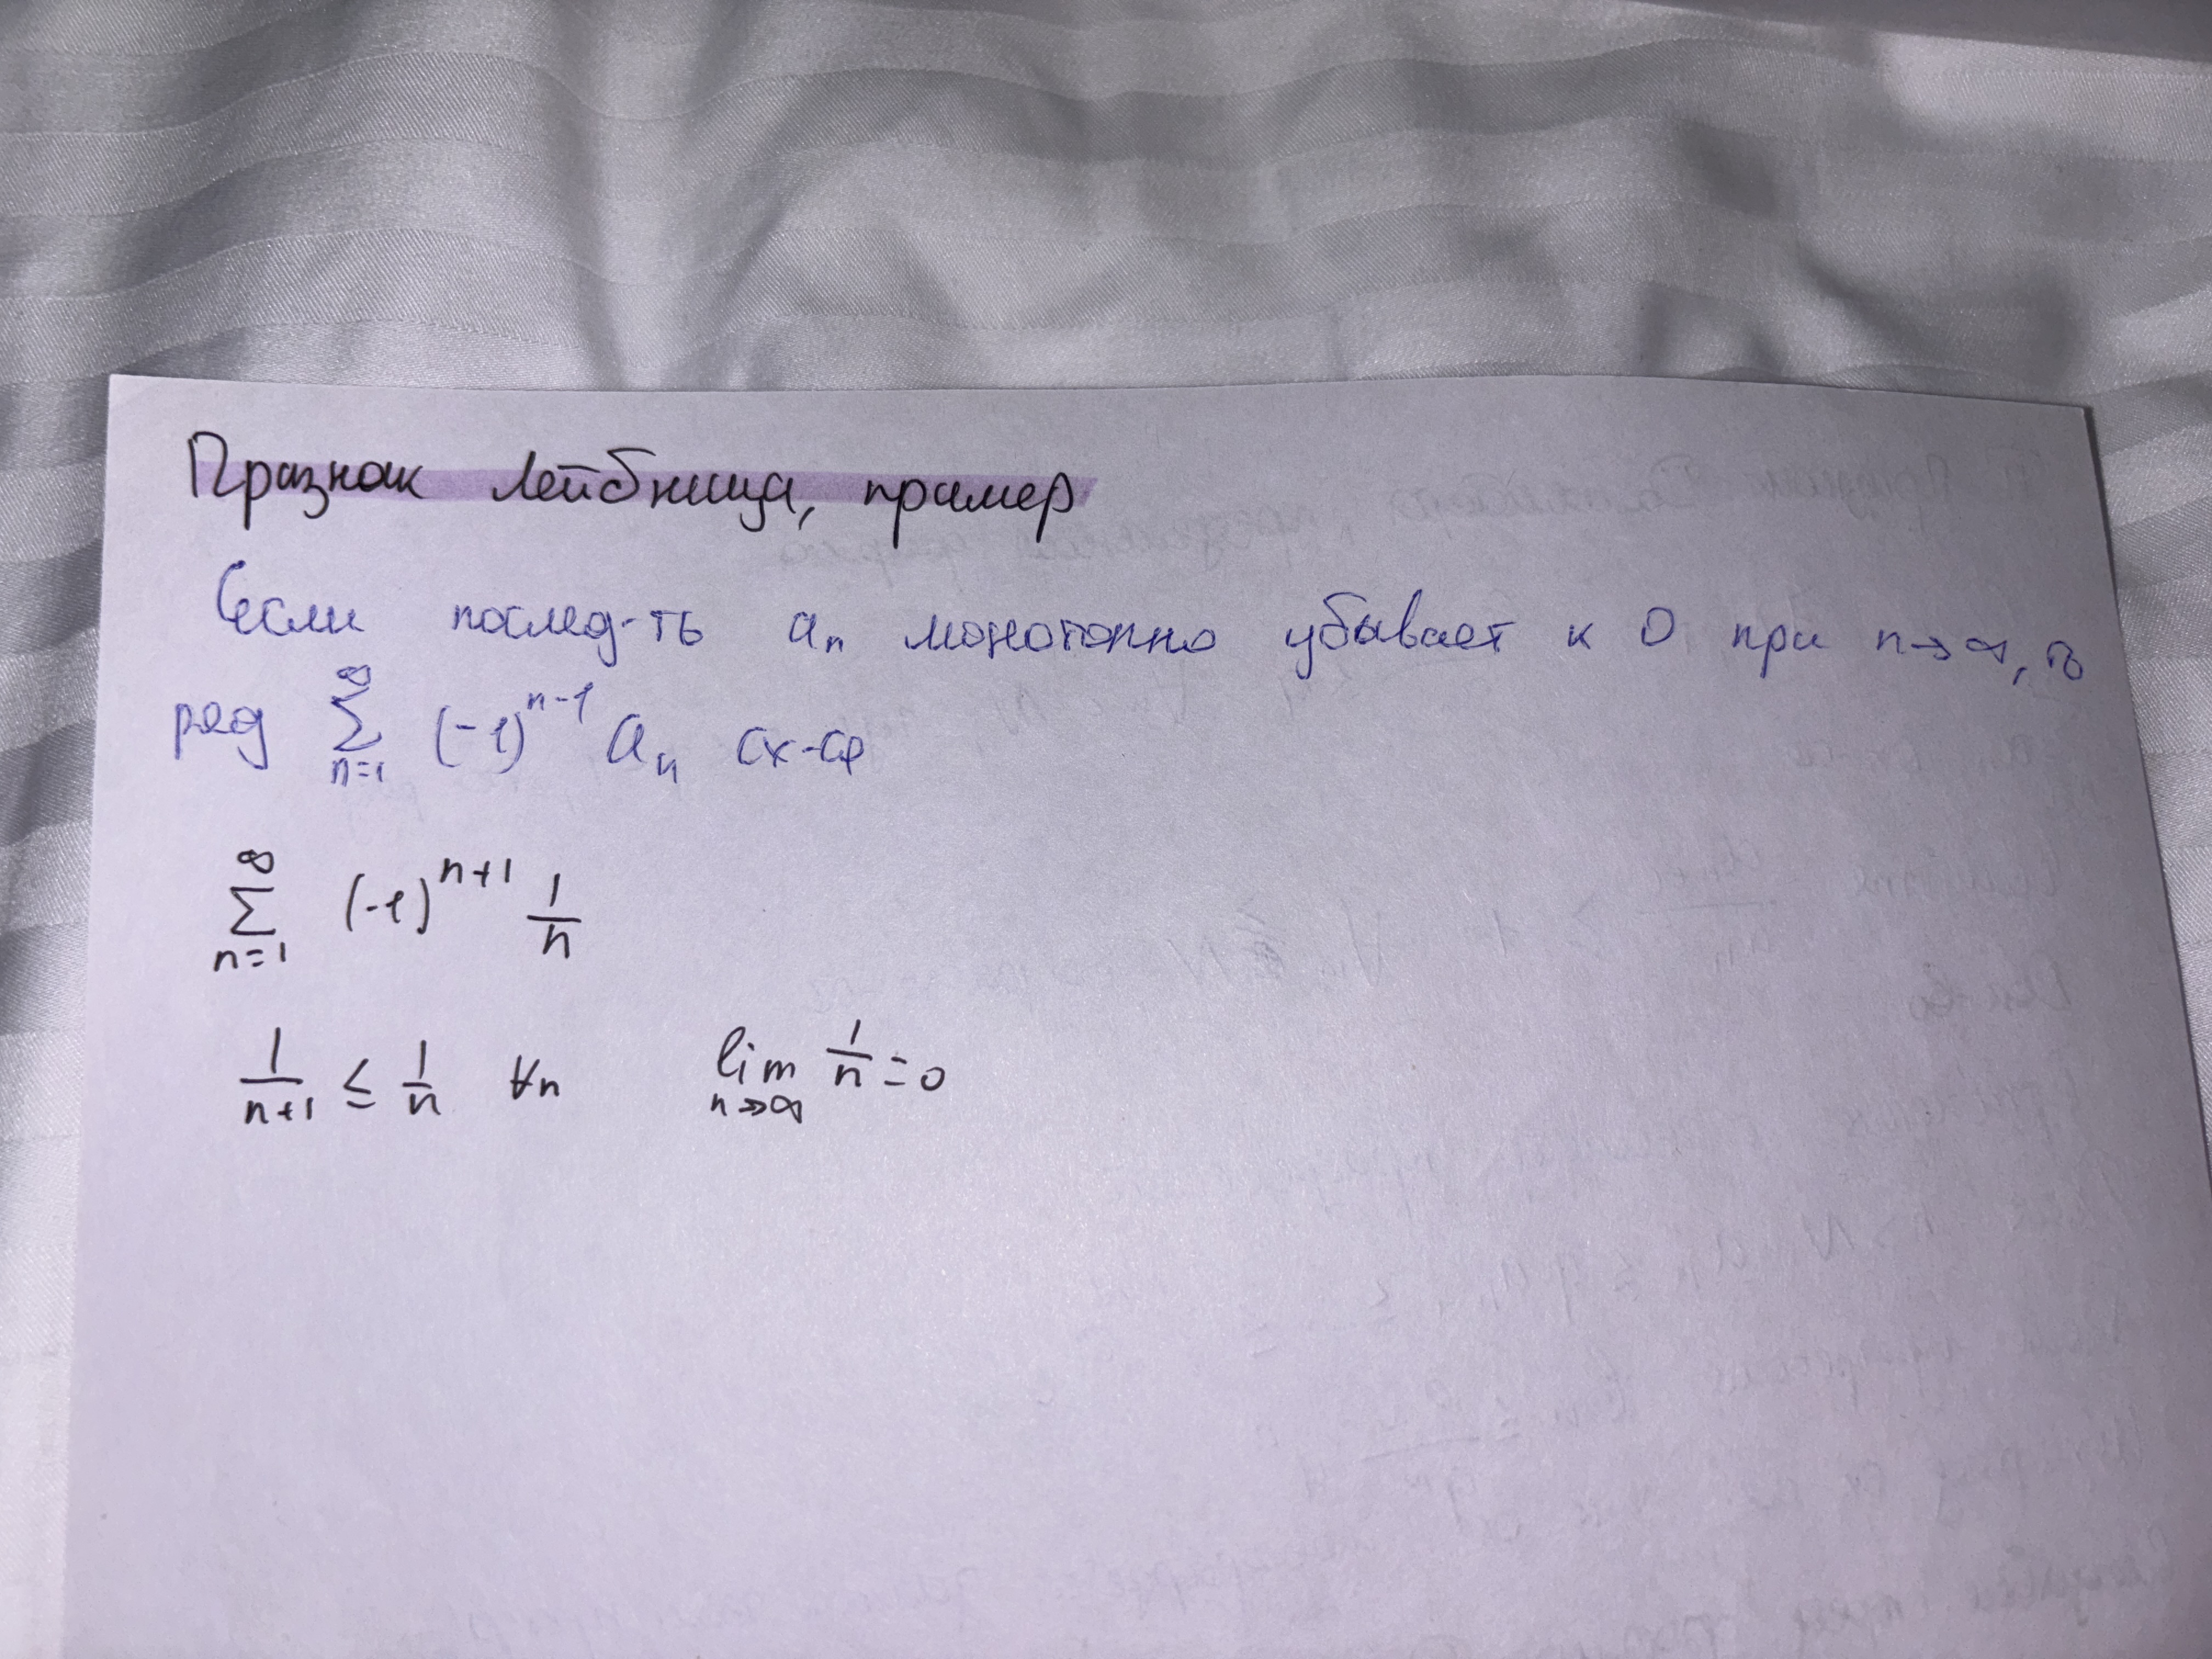 Признак Лейбница, пример
Если послед-ть aₙ монотонно убывает к 0 при n→∞, то
ряд ∑_{n=1}^{∞} (-1)^{n-1} aₙ сх-ся
∑_{n=1}^{∞} (-1)^{n+1} 1/n
1/(n+1) ≤ 1/n ∀n lim_{n→∞} 1/n = 0